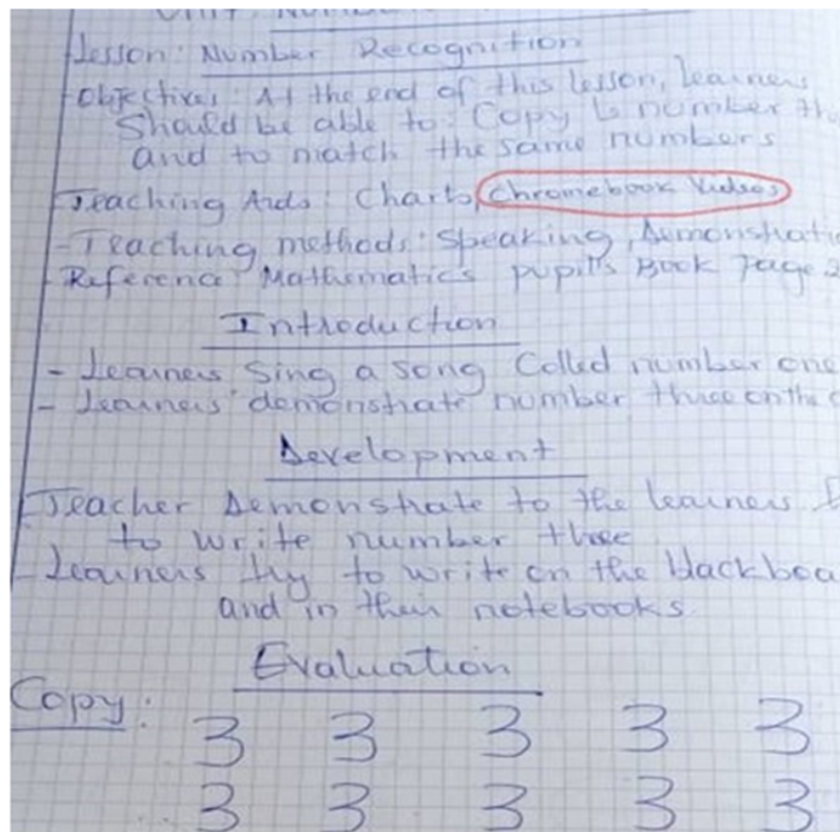 Unit: Numbe
Lesson: Number Recognition
Objectives: At the end of this lesson, learners
Should be able to: Copy number
and to match the same numbers
Teaching Aids: Charts, Chromebook Videos
- Teaching methods: Speaking, Demonstrati
Reference: Mathematics pupil's Book Page
Introduction
- Learners Sing a song Called number one
- Learners demonstrate number three on the
Development
- Teacher Demonstrate to the learners
to write number three
- Learners try to write on the blackboa
and in their notebooks.
Evaluation
Copy:
3 3 3 3 3
3 3 3 3 3